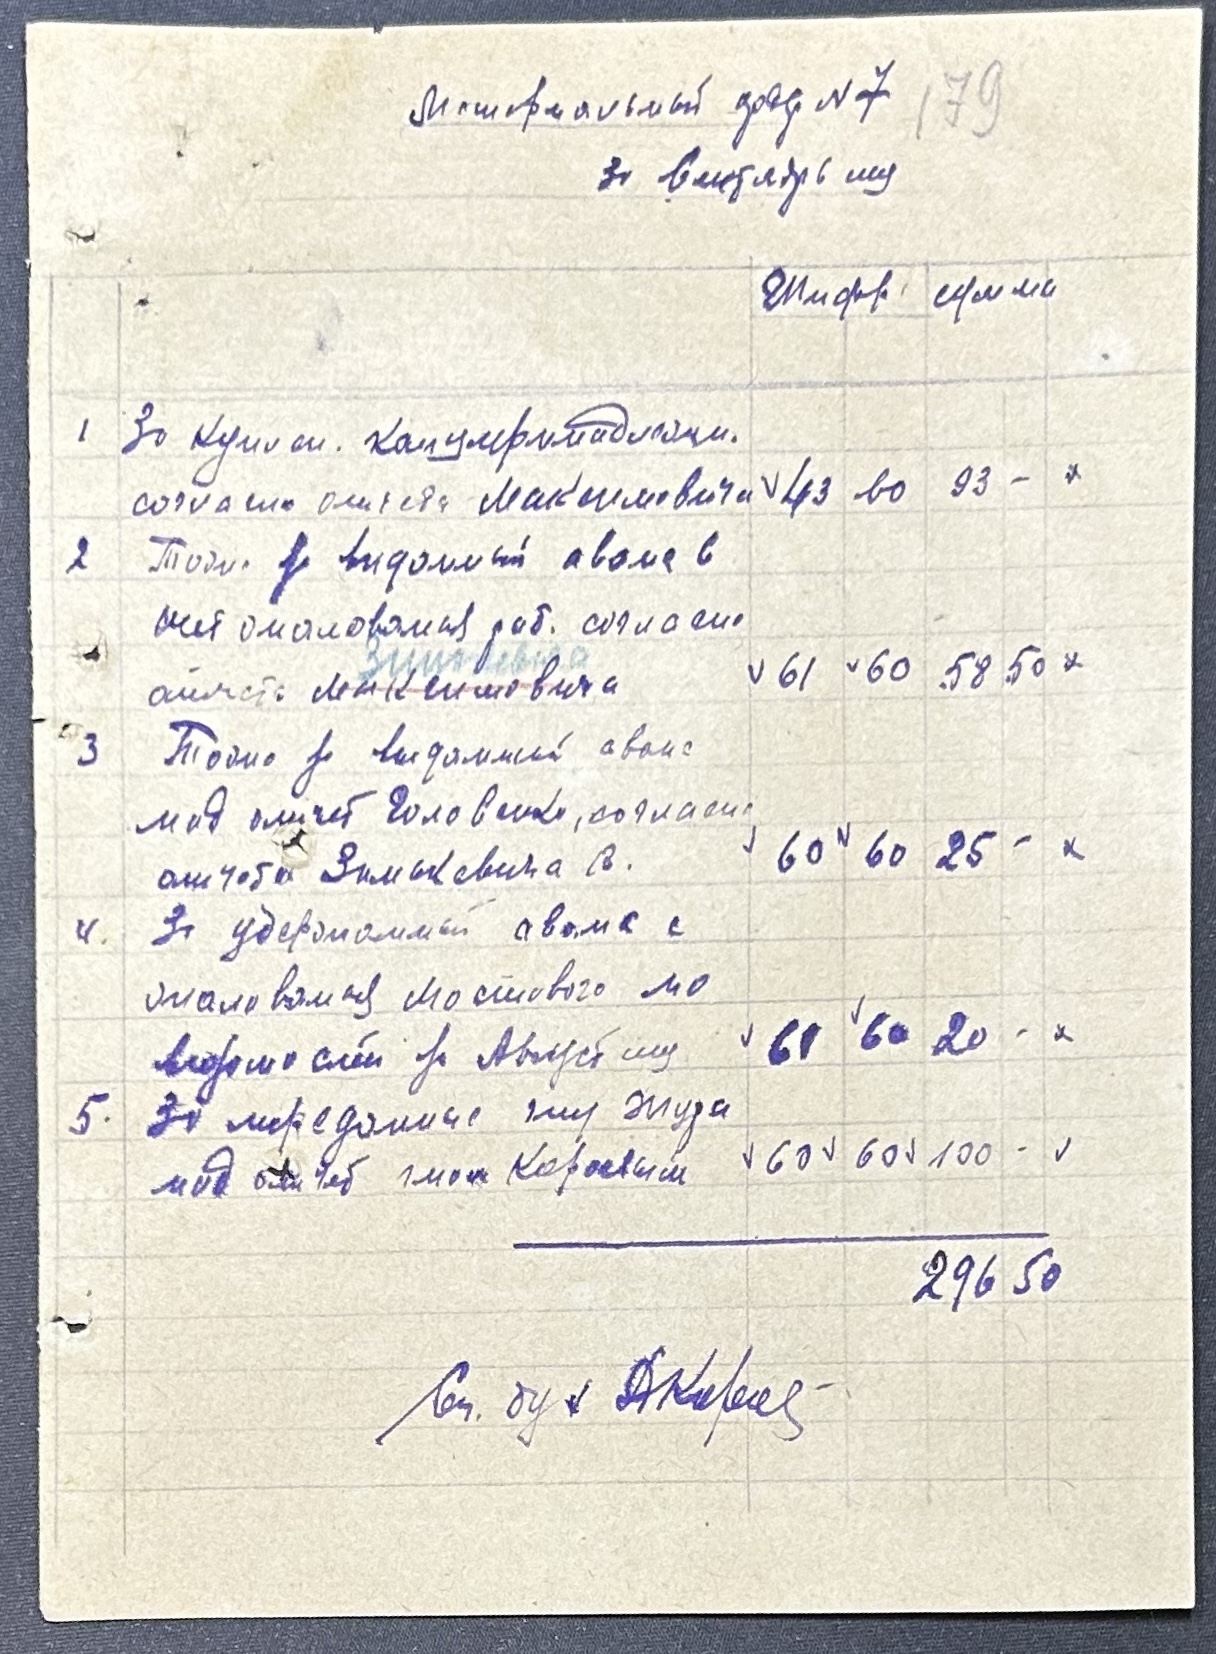 Мемориальный орд N 7 179
За Сентябрь м-ц
Шифр. сумма
1 За куплен. канцпринадлежн.
согласно отчета Максимовича 43 60 93 -
2 Тоже за выданный аванс в
счет жалования раб. согласно
Зинькевича
отчета Максимовича 61 60 58 50
3 Тоже за выданный аванс
под отчет Головенко, согласно
отчета Зинькевича В. 60 60 25 -
4. За удержанный аванс с
жалования Мостового по
ведомости за Август м-ц 61 60 20 -
5. За переданные
под отчет 60 60 100 -
296 50
Ст. бух